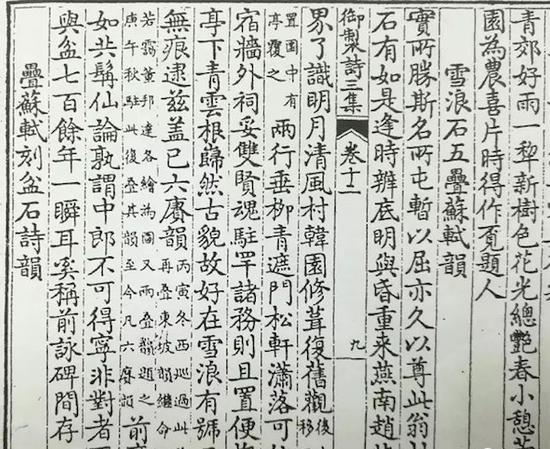 青郊好雨一犂新樹色花光總艷春小憩
園為農喜片時得作覓題人
雪浪石五疊蘇軾韻
實所勝斯名所屯暫以屈亦久以尊此翁
石有如是逢時辨底明與昏重來燕南趙
御製詩三集 卷十一 九
界了識明月清風村韓園修葺復舊觀後移
置園中有亭覆之兩行垂柳青遮門松軒瀟落可
宿牆外祠妥雙賢魂駐罕諸務則且置便
亭下青雲根歸然古貌故好在雪浪有號
無痕逮茲蓋已六賡韻丙寅冬西巡過此
再疊東坡韻繼命
若靄董邦達各繪為圖又兩疊韻題之
庚午秋駐此復疊其韻至今凡六賡韻前
如共髯仙論孰謂中郎不可得寧非對者
與盆七百餘年一瞬耳奚稱前詠碑間存
疊蘇軾刻盆石詩韻